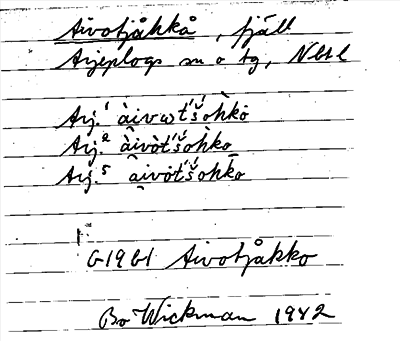 Aivotjåkkå, fjäll
Arjeplogs sn o tg, Nbt l
Arj.¹ àivωt́š́oh̀kȯ
Arj.² ȧ̀ivòt́š́oh̀ko
Arj.⁵ ȧ̂ivȯt́š́oh̄ko
G19 b1 Aivotjåkko
Bo Wickman 1942